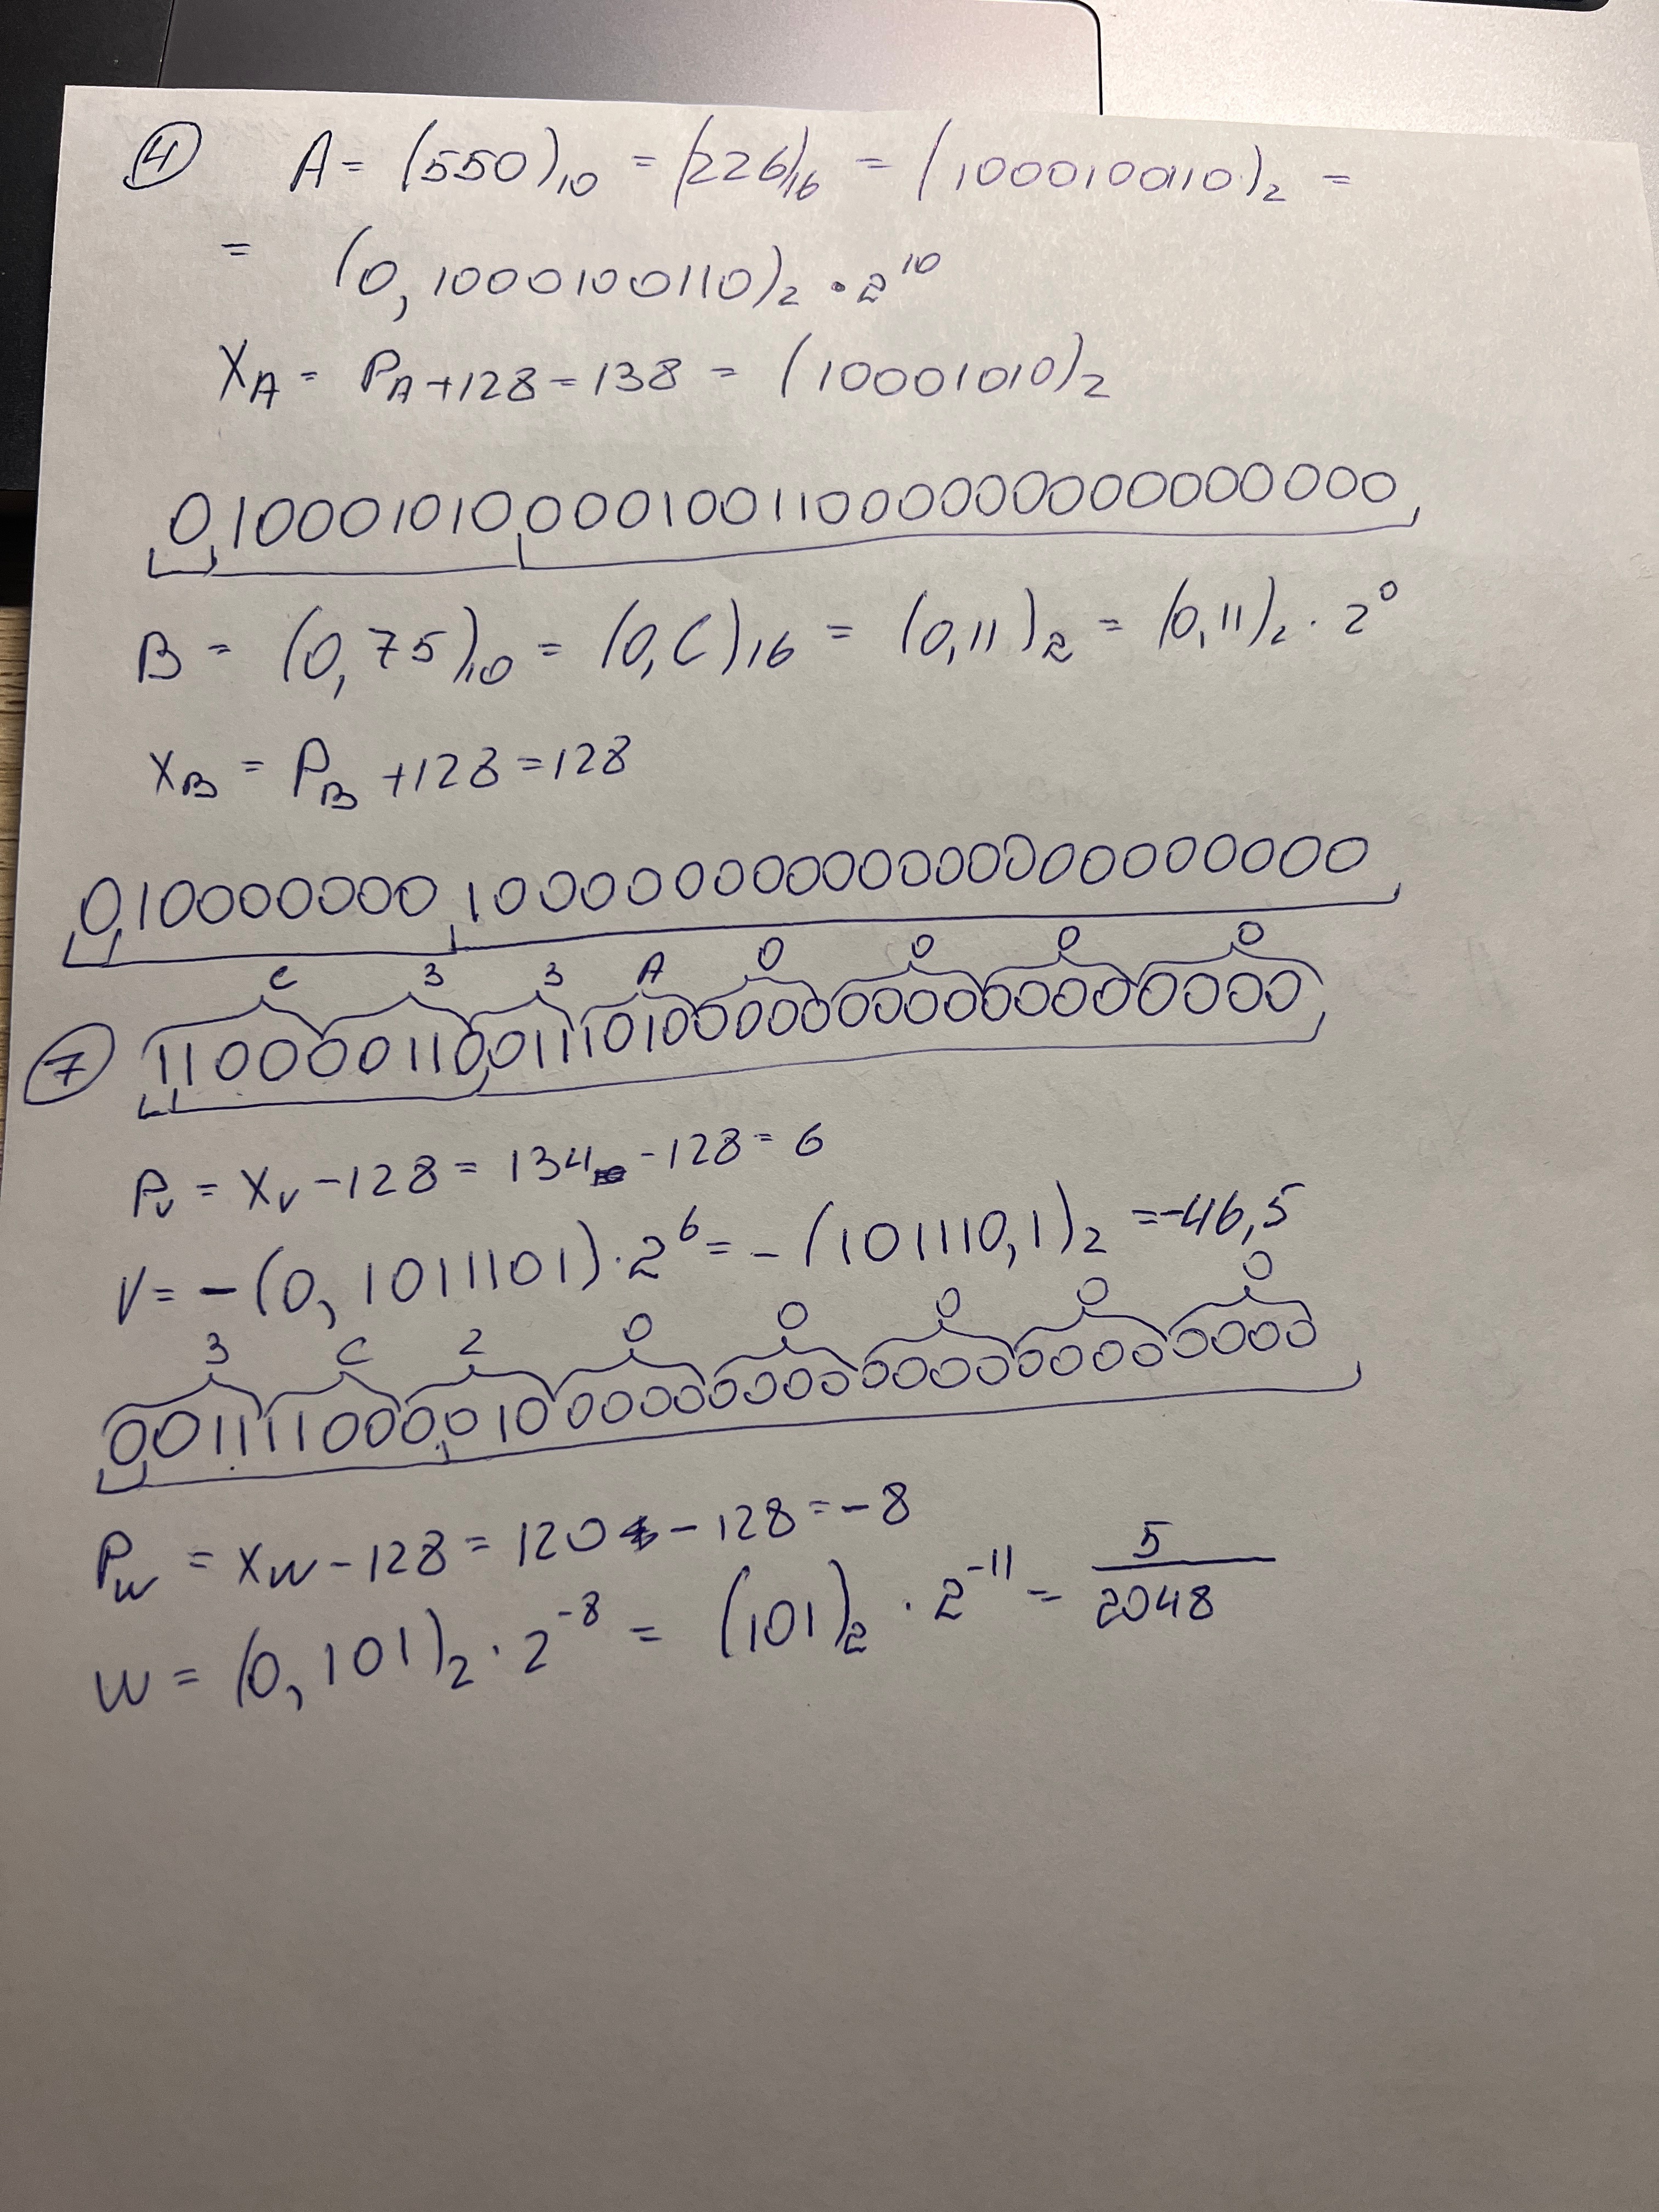 4 A = (550)₁₀ = (226)₁₆ = (1000100110)₂ =
= (0,1000100110)₂ · 2¹⁰
X_A = P_A + 128 = 138 = (10001010)₂
0 10001010 00010011000000000000000
B = (0,75)₁₀ = (0,C)₁₆ = (0,11)₂ = (0,11)₂ · 2⁰
X_B = P_B + 128 = 128
0 10000000 10000000000000000000000
C 3 3 A 0 0 0 0
7 1100 0011 0011 1010 0000 0000 0000 0000
P_V = X_V - 128 = 134 - 128 = 6
V = -(0,1011101) · 2⁶ = -(101110,1)₂ = -46,5
3 C 2 0 0 0 0 0
0011 1100 0010 0000 0000 0000 0000 0000
P_W = X_W - 128 = 120 - 128 = -8
W = (0,101)₂ · 2⁻⁸ = (101)₂ · 2⁻¹¹ = 5/2048